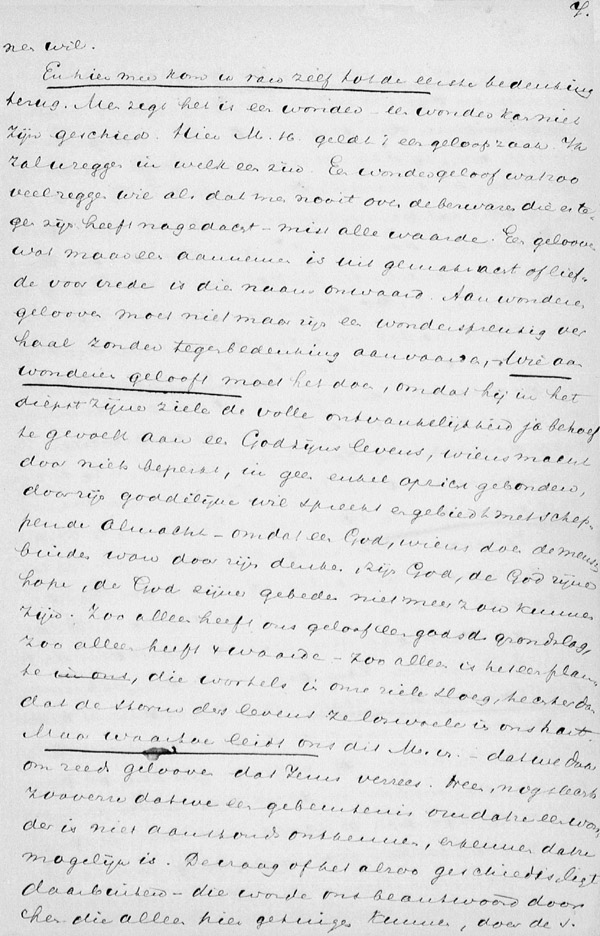 7.
ner wil.
En hier mee kom ik van zelf tot de eerste bedenking
terug. Men zegt het is een wonder – een wonder kan niet
zijn geschied. Hier M. H. geldt 't een geloofzaak. Ik
zal u zeggen in welk een zin. Een wondergeloof wat zoo
veel zeggen wil als dat men nooit over de bezwaren die er te-
gen zijn heeft nagedacht – mist alle waarde. Een gelooven
wat maar een aannemen is uit gemakzucht of lief-
de voor vrede is dien naam onwaard. Aan wonderen
gelooven moet niet maar zijn een wonderspreukig ver
haal zonder tegenbedenking aanvaarden, Wie aan
wonderen gelooft moet het doen, omdat hij in het
diepst zijner ziele de volle ontvankelijkheid ja behoef
te gevoelt aan een God zijns levens, wiens macht
door niets beperkt, in geen enkel opzicht gebonden,
door zijn goddelijke wil spreekt er gebiedt met schep-
pende Almacht – omdat een God, wiens doen de mensch
binden wou door zijn denken, zijn God, de God zijner
hope, de God zijner gebeden niet meer zou kunnen
zijn. Zoo alleen heeft ons geloof een grondslag,
Zoo alleen heeft 't waarde – zoo alleen is het een plan
te in ons, die wortels in onze ziele sloeg, hechter dan
dat de storm des levens ze loswoele in ons hart
Maar waartoe leidt ons dit M. – dat we daar
om reeds gelooven dat Jezus verrees. Neen, nog slechts
zooverre dat we een gebeurtenis omdat ze een won
der is niet aanstonds ontkennen, erkennen dat ze
mogelijk is. De vraag of het alzoo geschiedt ligt
daarbuiten – die worde ons beantwoord door
hen die alleen hier getuigen kunnen, door de